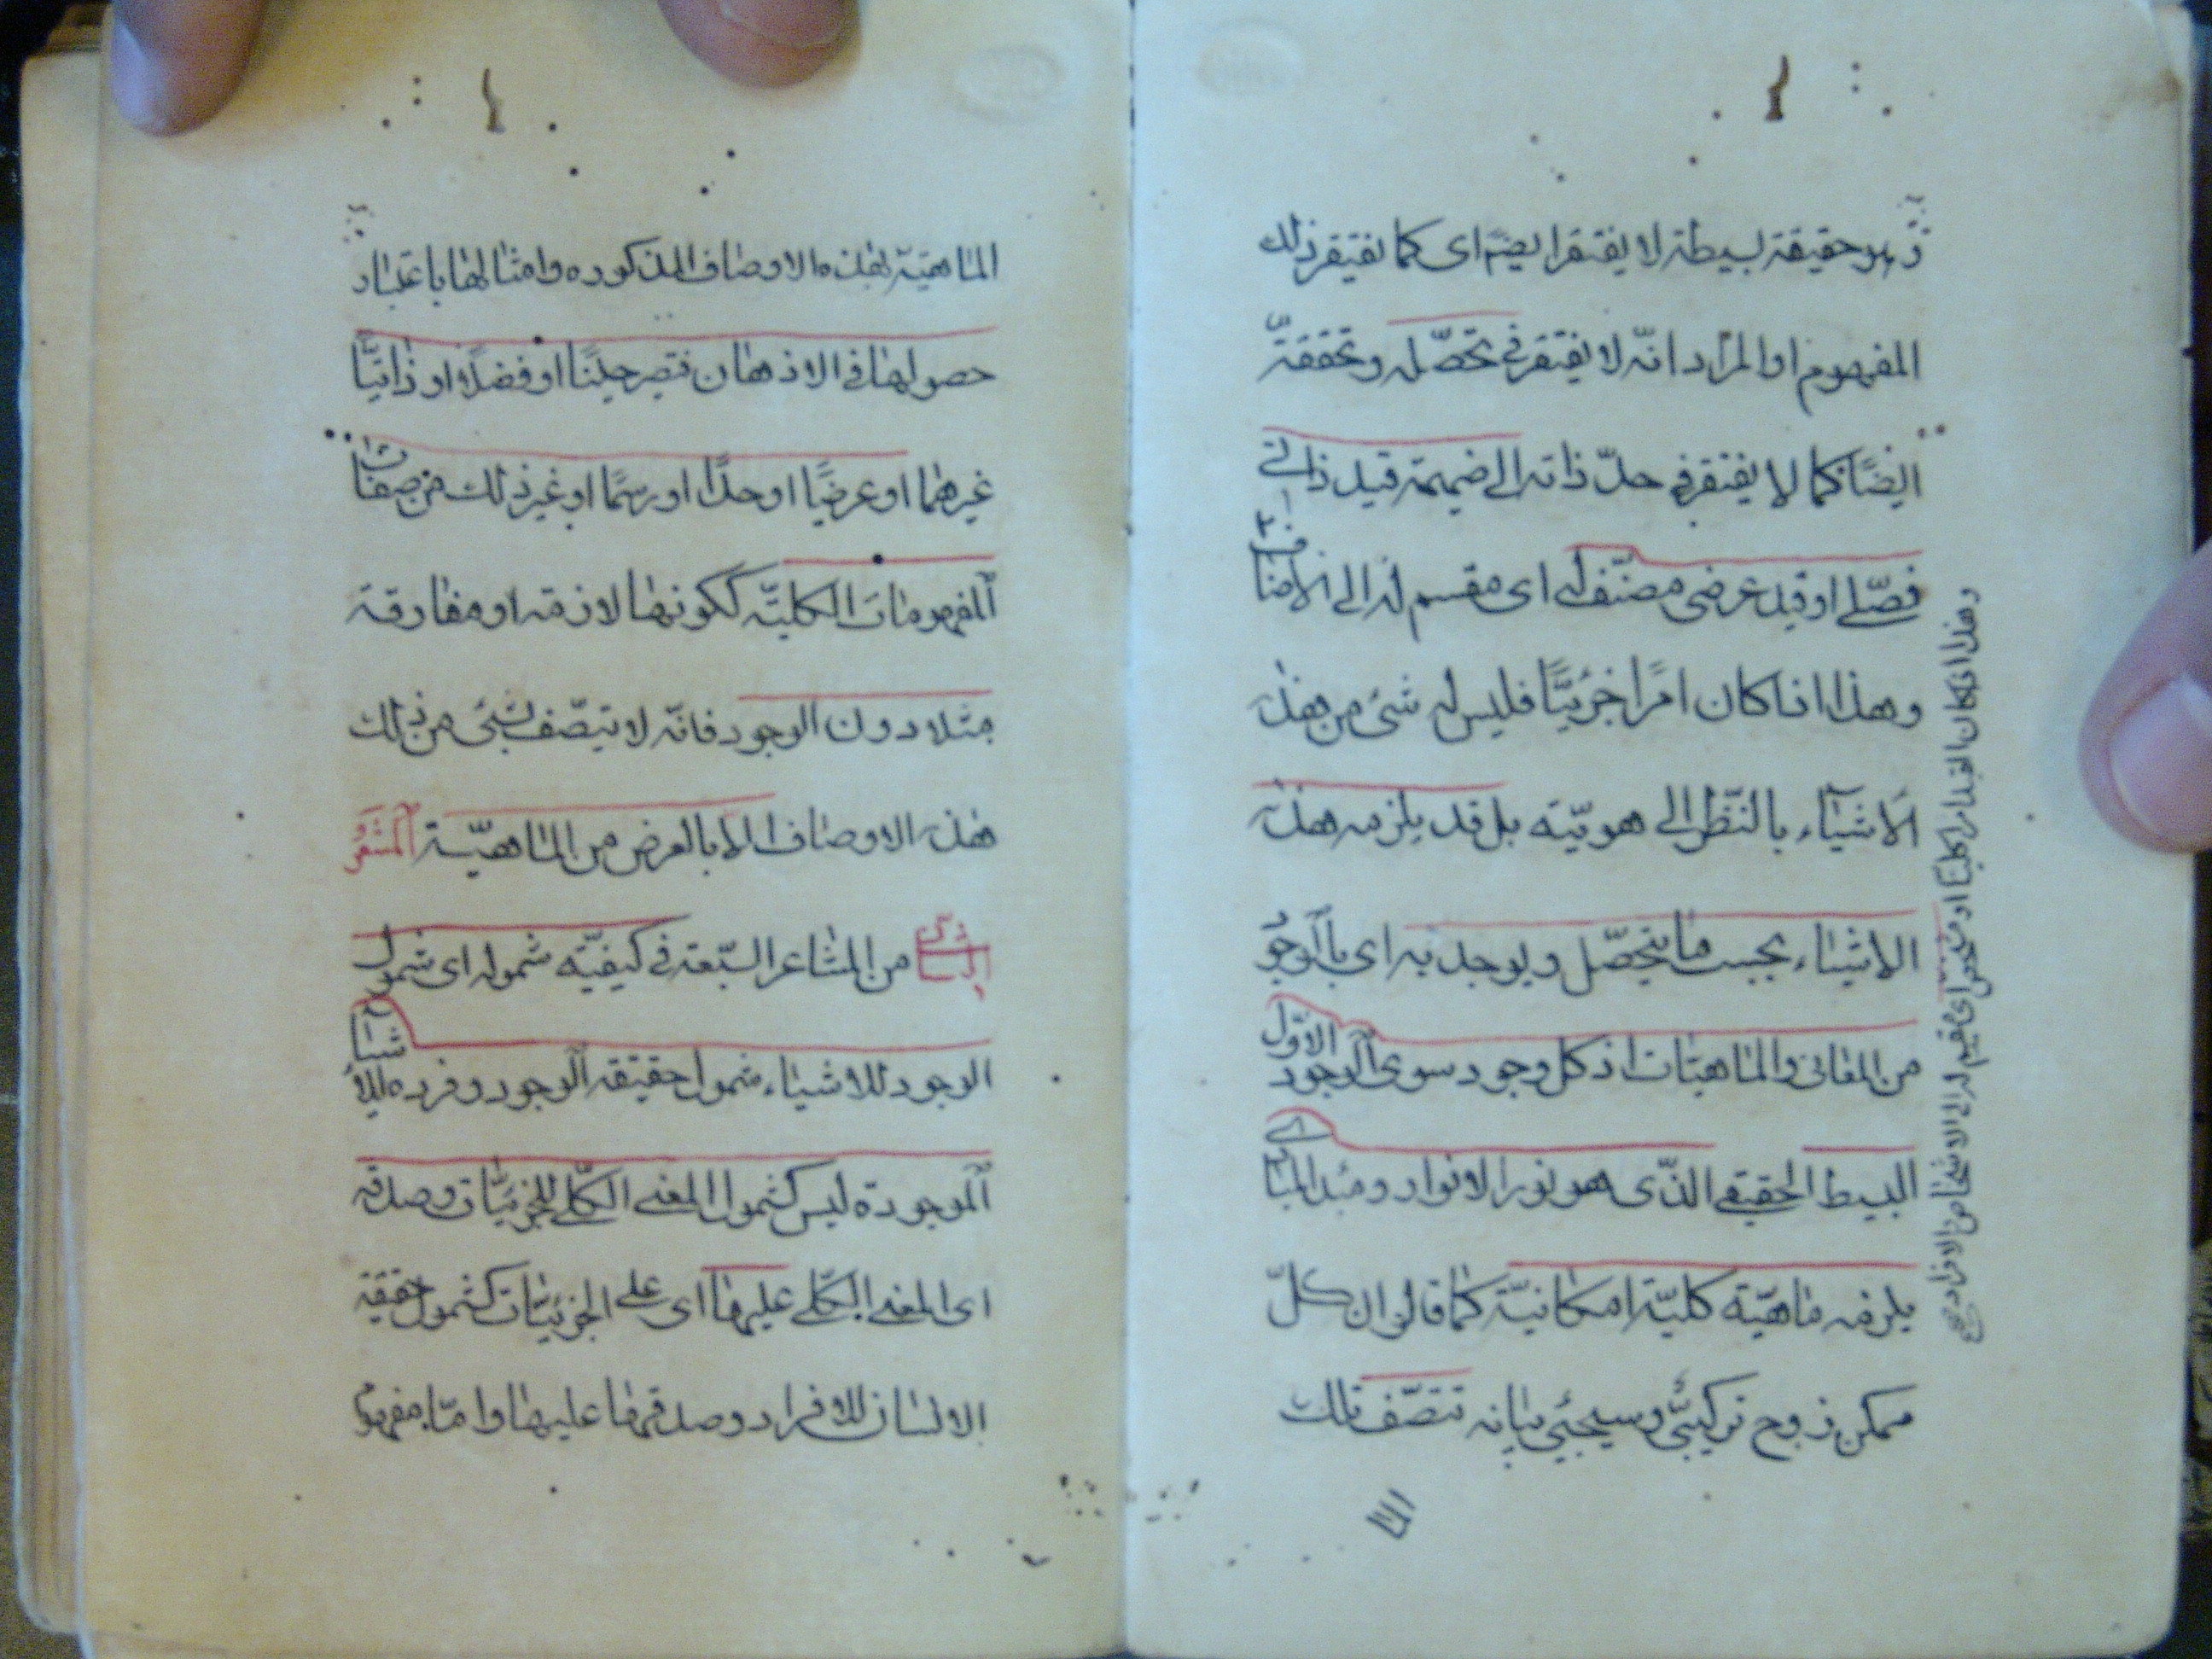 فهو حقيقة بسيطة لا يفتقر ايضا اى كما يفتقر ذلك
المفهوم او المراد انّه لا يفتقر فى تحصّله وتحققه
ايضًا كما لا يفتقر فى حدّ ذاته الى ضميمة قيد ذاتى
فصّلى او قيد عرضى مصنّف له اى مقسم له الى الاصناف
وهذا اذا كان امرًا جزئيًّا فليس له شىء من هذه
الاشياء بالنّظر الى هويّته بل قد يلزمه هذه
الاشياء بحسب ما يتحصّل ويوجد به اى بالوجود
من المعانى والماهيات اذ كل وجود سوى الوجود الاوّل
البسيط الحقيقى الذّى هو نور الانوار ومبدء المبادى
يلزمه ماهيّة كليّة امكانيّة كما قالوا ان كلّ
ممكن زوج تركيبىّ وسيجيئ بيانه تتصّف تلك
الما
وهذا اذا كان القيد امرا كليّا او مشخص اى مقسم له الى الاشخاص والافراد
الماهيّة بهذه الاوصاف المذكوره وامثالها باعتبار
حصولها فى الاذهان فتصير جنسًا او فصلًا او ذاتيًّا
غيرهما او عرضيًّا او حدًّا او رسمًا او غير ذلك من صفات
المفهومات الكليّه ككونها لازمة او مفارقة
مثلا دون الوجود فانّه لا يتصّف بشىء من ذلك
هذه الاوصاف الا بالعرض من الماهيّة المشعر
الثانى من المشاعر السّبعة فى كيفيّة شموله اى شمول
الوجود للاشياء شمول حقيقة الوجود وفرده للاشياء
الموجودة ليس كشمول المعنى الكلّى للجزئيّات وصدقه
اى المعنى الكلّى عليها اى على الجزئيّات كشمول حقيقة
الانسان للافراد وصدقها عليها وامّا مفهوم